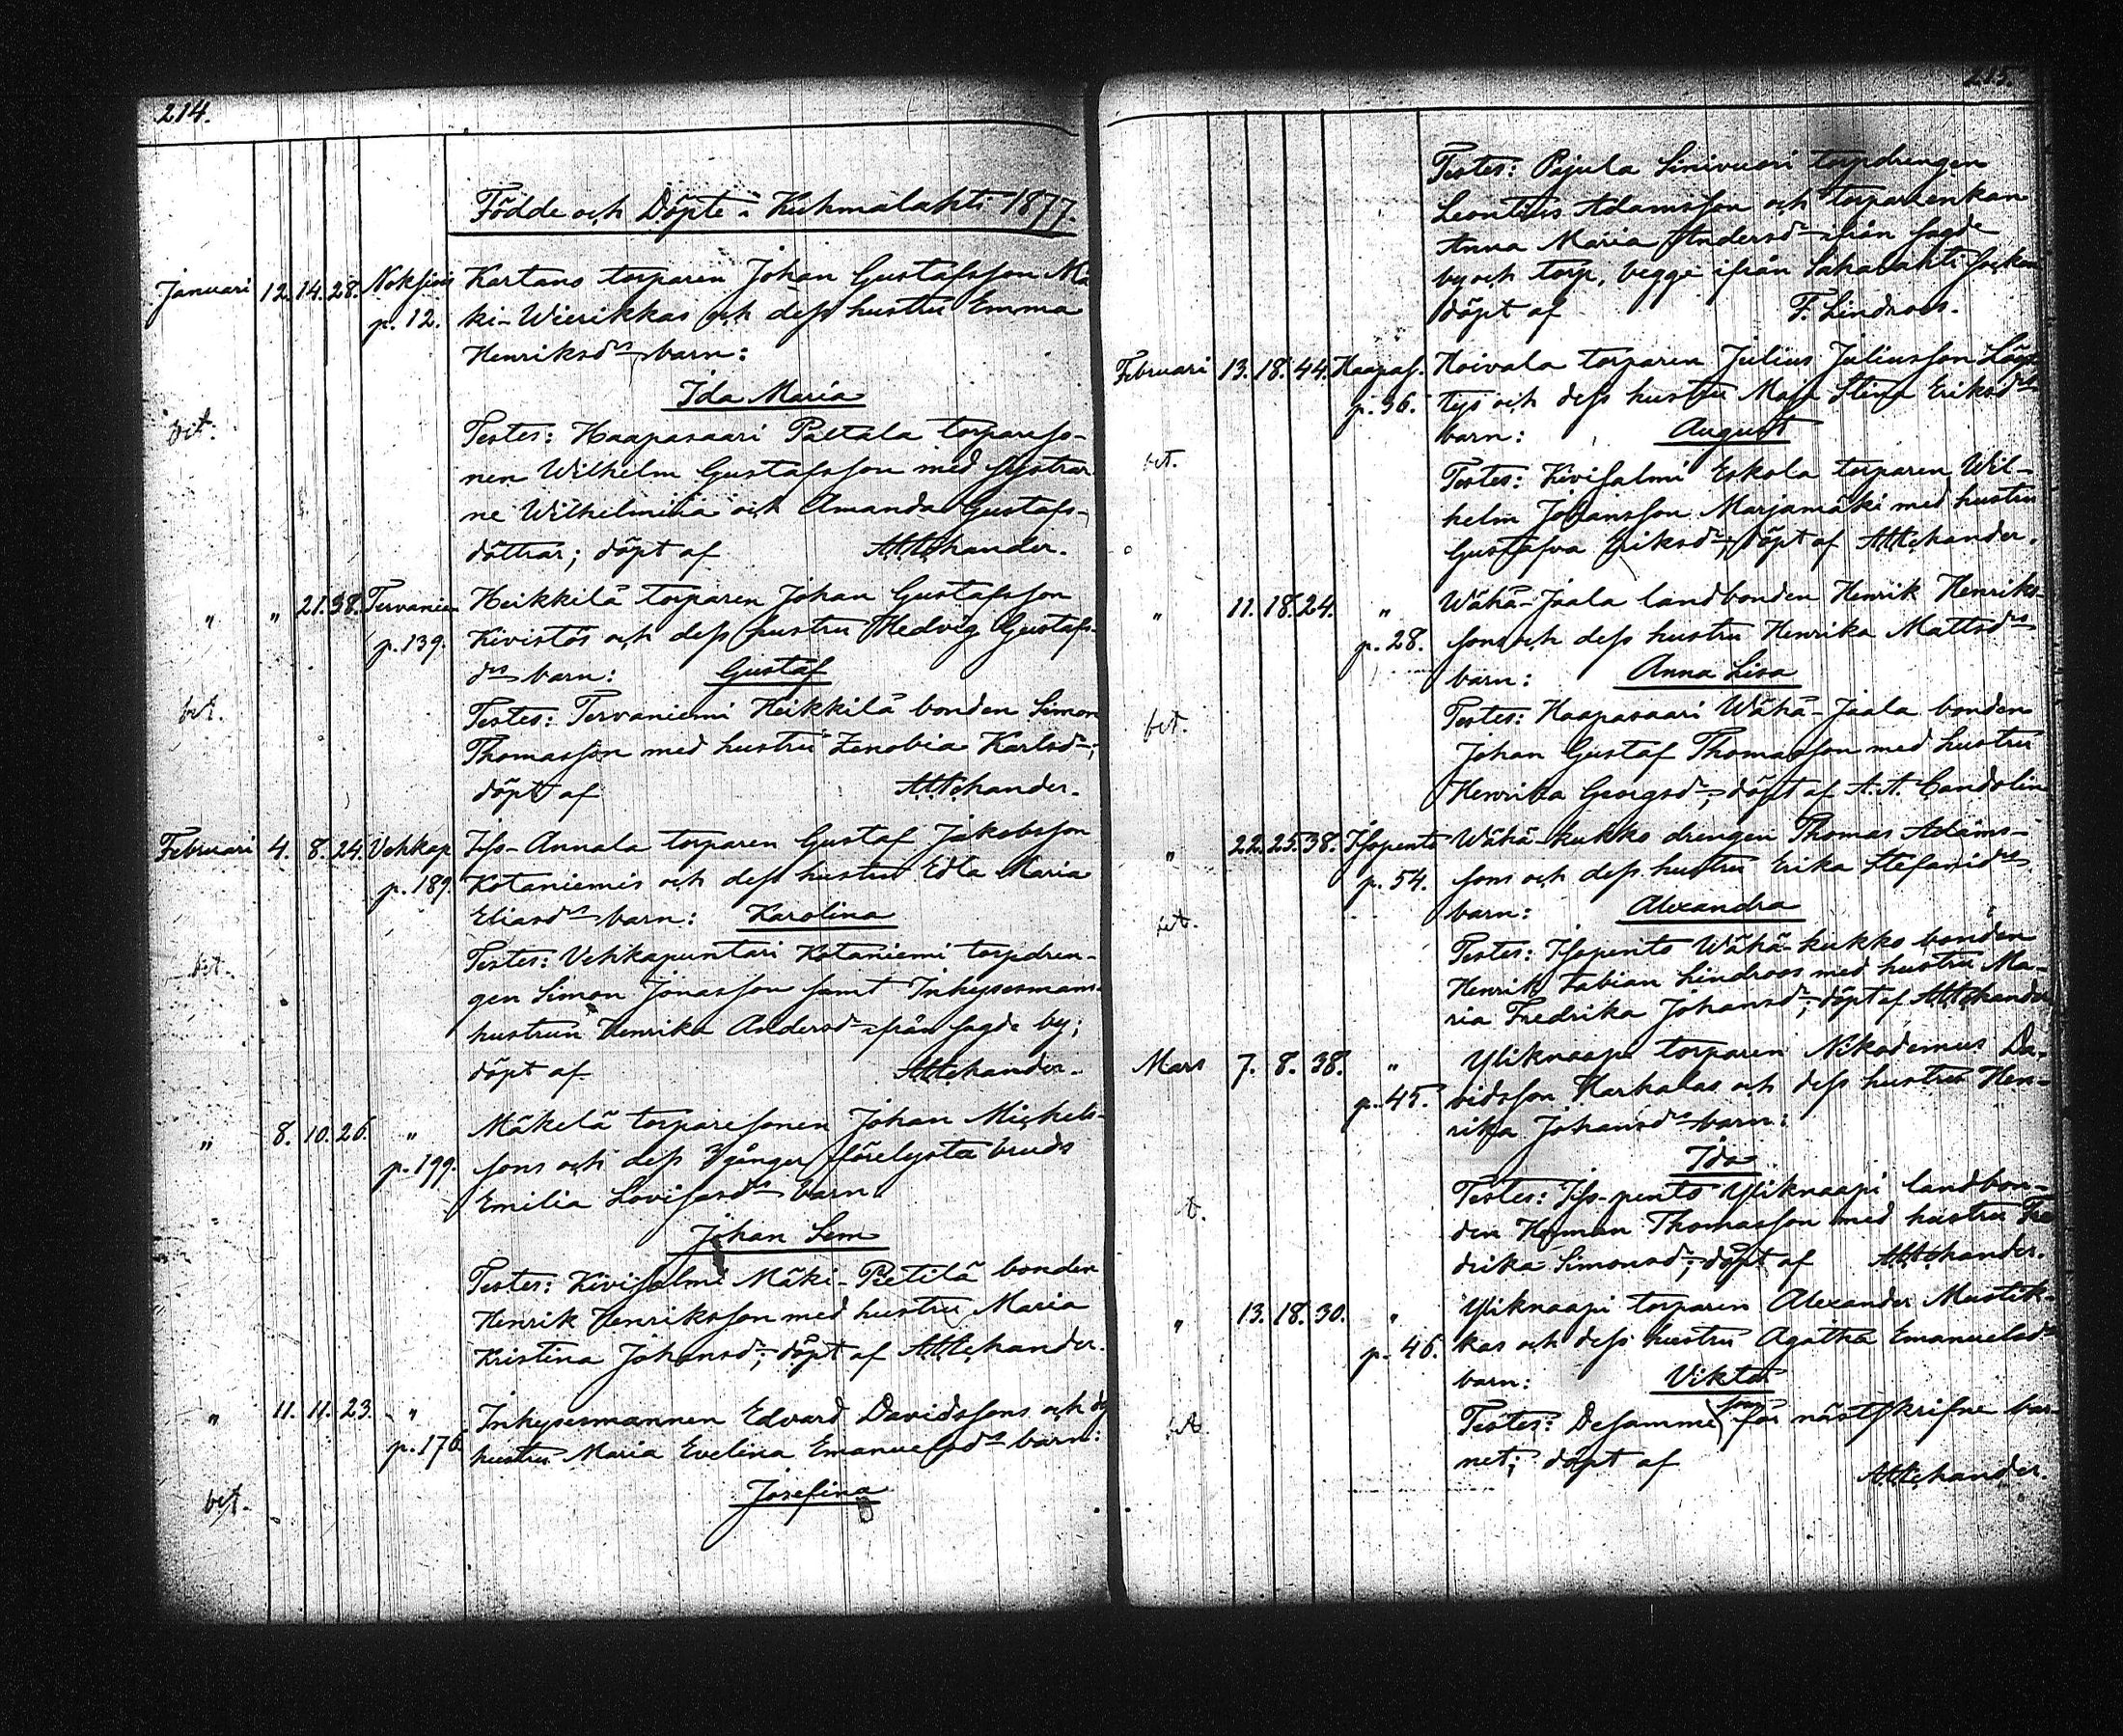 214.
Födde och Döpte i Kuhmalahti 1877.
Januari 12. 14. 28. Noksjois Kartano torparen Johan Gustafsson Mä
p. 12. ki-Wierikkas och dess hustru Emma
Henriksdrs barn:
Ida Maria
bet. Testes: Haapasaari Paltala torpareso-
nen Wilhelm Gustafsson med systrar
ne Wilhelmina och Amanda Gustafs-
döttrar; döpt af
" " 21. 38. Tervanien Heikkilä torparen Johan Gustafsson
p. 139. Kivistös och dess hustru Hedvig Gustafs-
drs barn: Gustaf
bet. Testes: Tervaniemi Heikkilä bonden Simon
Thomasson med hustru Zenobia Karlsdr;
döpt af
Februari 4. 8. 24. Vehkap Iso-Annala torparen Gustaf Jakobsson
p. 189. Kotaniemis och dess hustru Edla Maria
Eliasdrs barn: Karolina
bet. Testes: Vehkapuntari Kotaniemi torpdren-
gen Simon Jonasson samt Inhysesmans-
hustrun Henrika Andersdr från sagde by;
döpt af
" 8. 10. 26. " Mäkelä torparesonen Johan Mickels-
p. 199. sons och dess 3 gånger förelysta bruds
Emilia Lovisasdrs barn
Johan Sem
Testes: Kivisalmi Mäki-Pietilä bonden
Henrik Henriksson med hustru Maria
Kristina Johansdr; döpt af
" 11. 11. 23. " Inhysesmannen Edvard Davidssons och ds
p. 176 hustru Maria Evelina Emanuelsdrs barn:
bet. Josefina
215.
Testes: Pajula Sinivuori torpdrengen
Leontius Adamsson och torparenkan
Anna Maria Andersdr från sagde
by och torp, begge ifrån Sahalahti socken
döpt af F. Lindroos.
Februari 13. 18. 44. Haapas. Hoivala torparen Julius Juliusson
p. 36. och dess hustru Maja Stina Eriksdrs
barn: August
bet. Testes: Kivisalmi Eskola torparen Wil-
helm Johansson Marjamäki med hustru
Gustafva Eriksdr; döpt af
" 11. 18. 24. " Wähä-Jaala landbonden Henrik Henriks-
p. 28. sons och dess hustru Henrika Mattsdrs
barn: Anna Lisa
bet. Testes: Haapasaari Wähä-Jaala bonden
Johan Gustaf Thomasson med hustru
Henrika Georgsdr; döpt af A. A. Candolin
" 22. 25. 38. Isopento Wähä-kukko drengen Thomas Adams-
p. 54. sons och dess hustru Erika Stefansdrs
bet. barn: Alexandra
Testes: Isopento Wähä-kukko bonden
Henrik Fabian Lindroos med hustru Ma-
ria Fredrika Johansdr; döpt af
Mars 7. 8. 38. " Yliknaapi torparen Nikodemus Da-
p. 45. vidsson Harhalas och dess hustru Hen-
rika Johansdrs barn:
Ida
Testes: Iso-pento Yliknaapi landbon-
den Herman Thomasson med hustru Fre
drika Simonsdr; döpt af
" 13. 18. 30. " Yliknaapi torparen Alexander Mustik-
p. 46. kas och dess hustru Agatha Emanuelsdrs
barn: Viktor
bet. Testes: Desamme som för nästskrifne bar-
net; döpt af